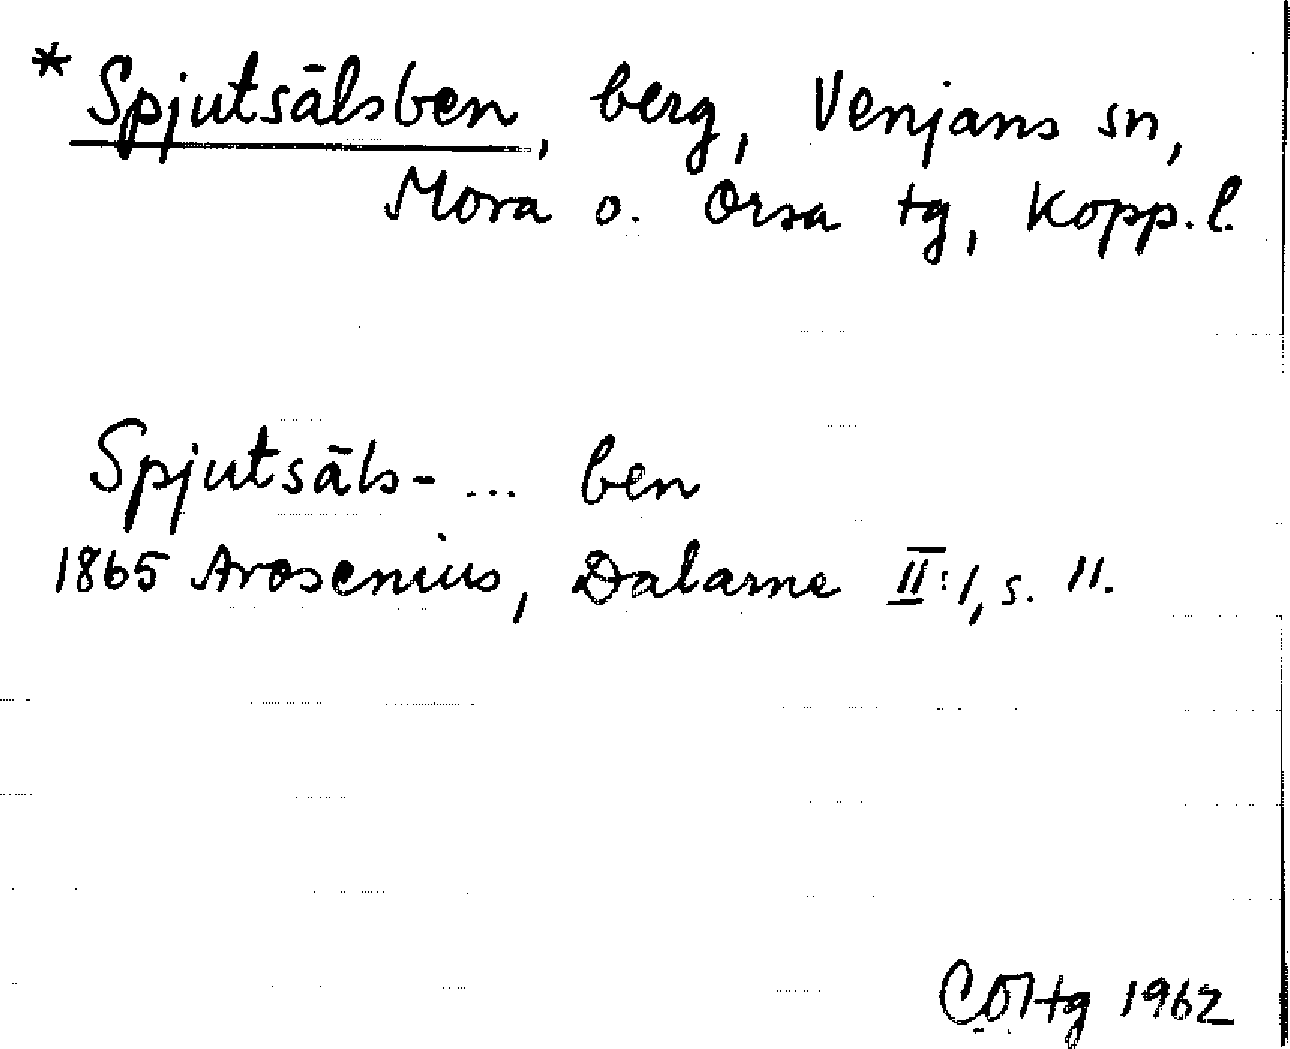 * Spjutsälsben, berg, Venjans sn,
Mora o. Orsa tg, Kopp. l.
Spjutsäls- ... ben
1865 Arosenius, Dalarne II:1, s. 11.
1962